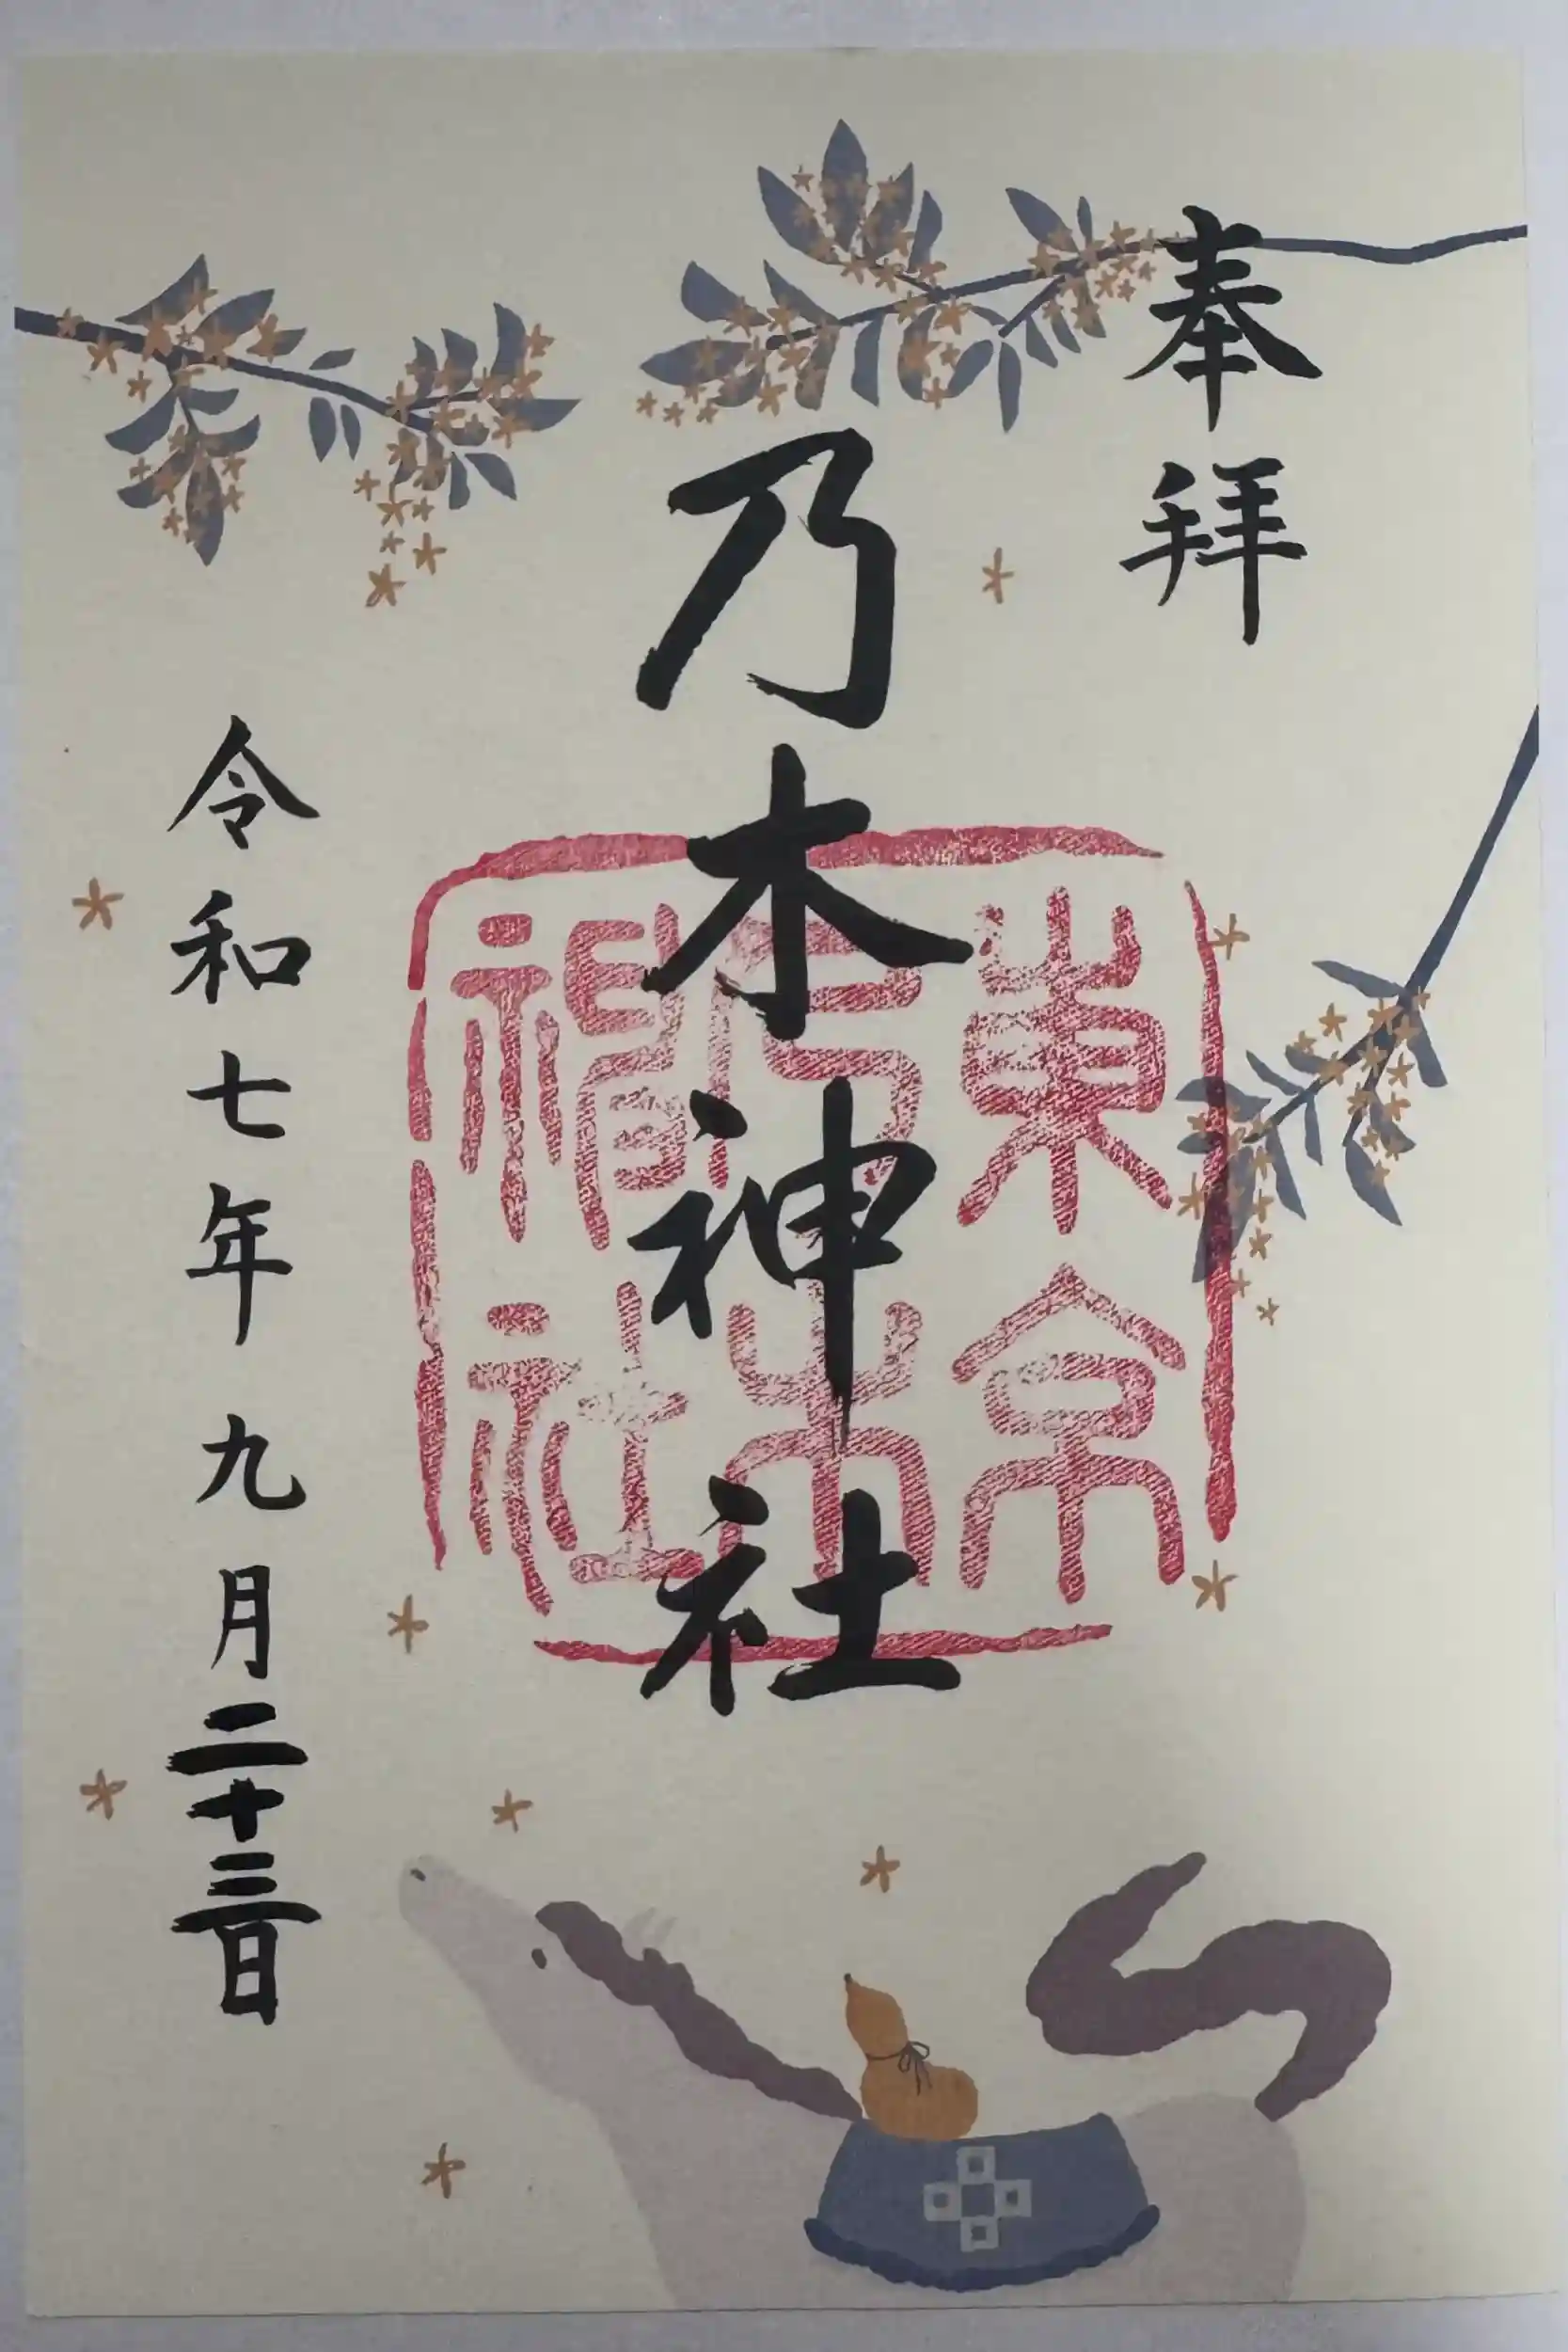 奉拝
乃木神社
東京乃木神社
令和七年 九月二十三日